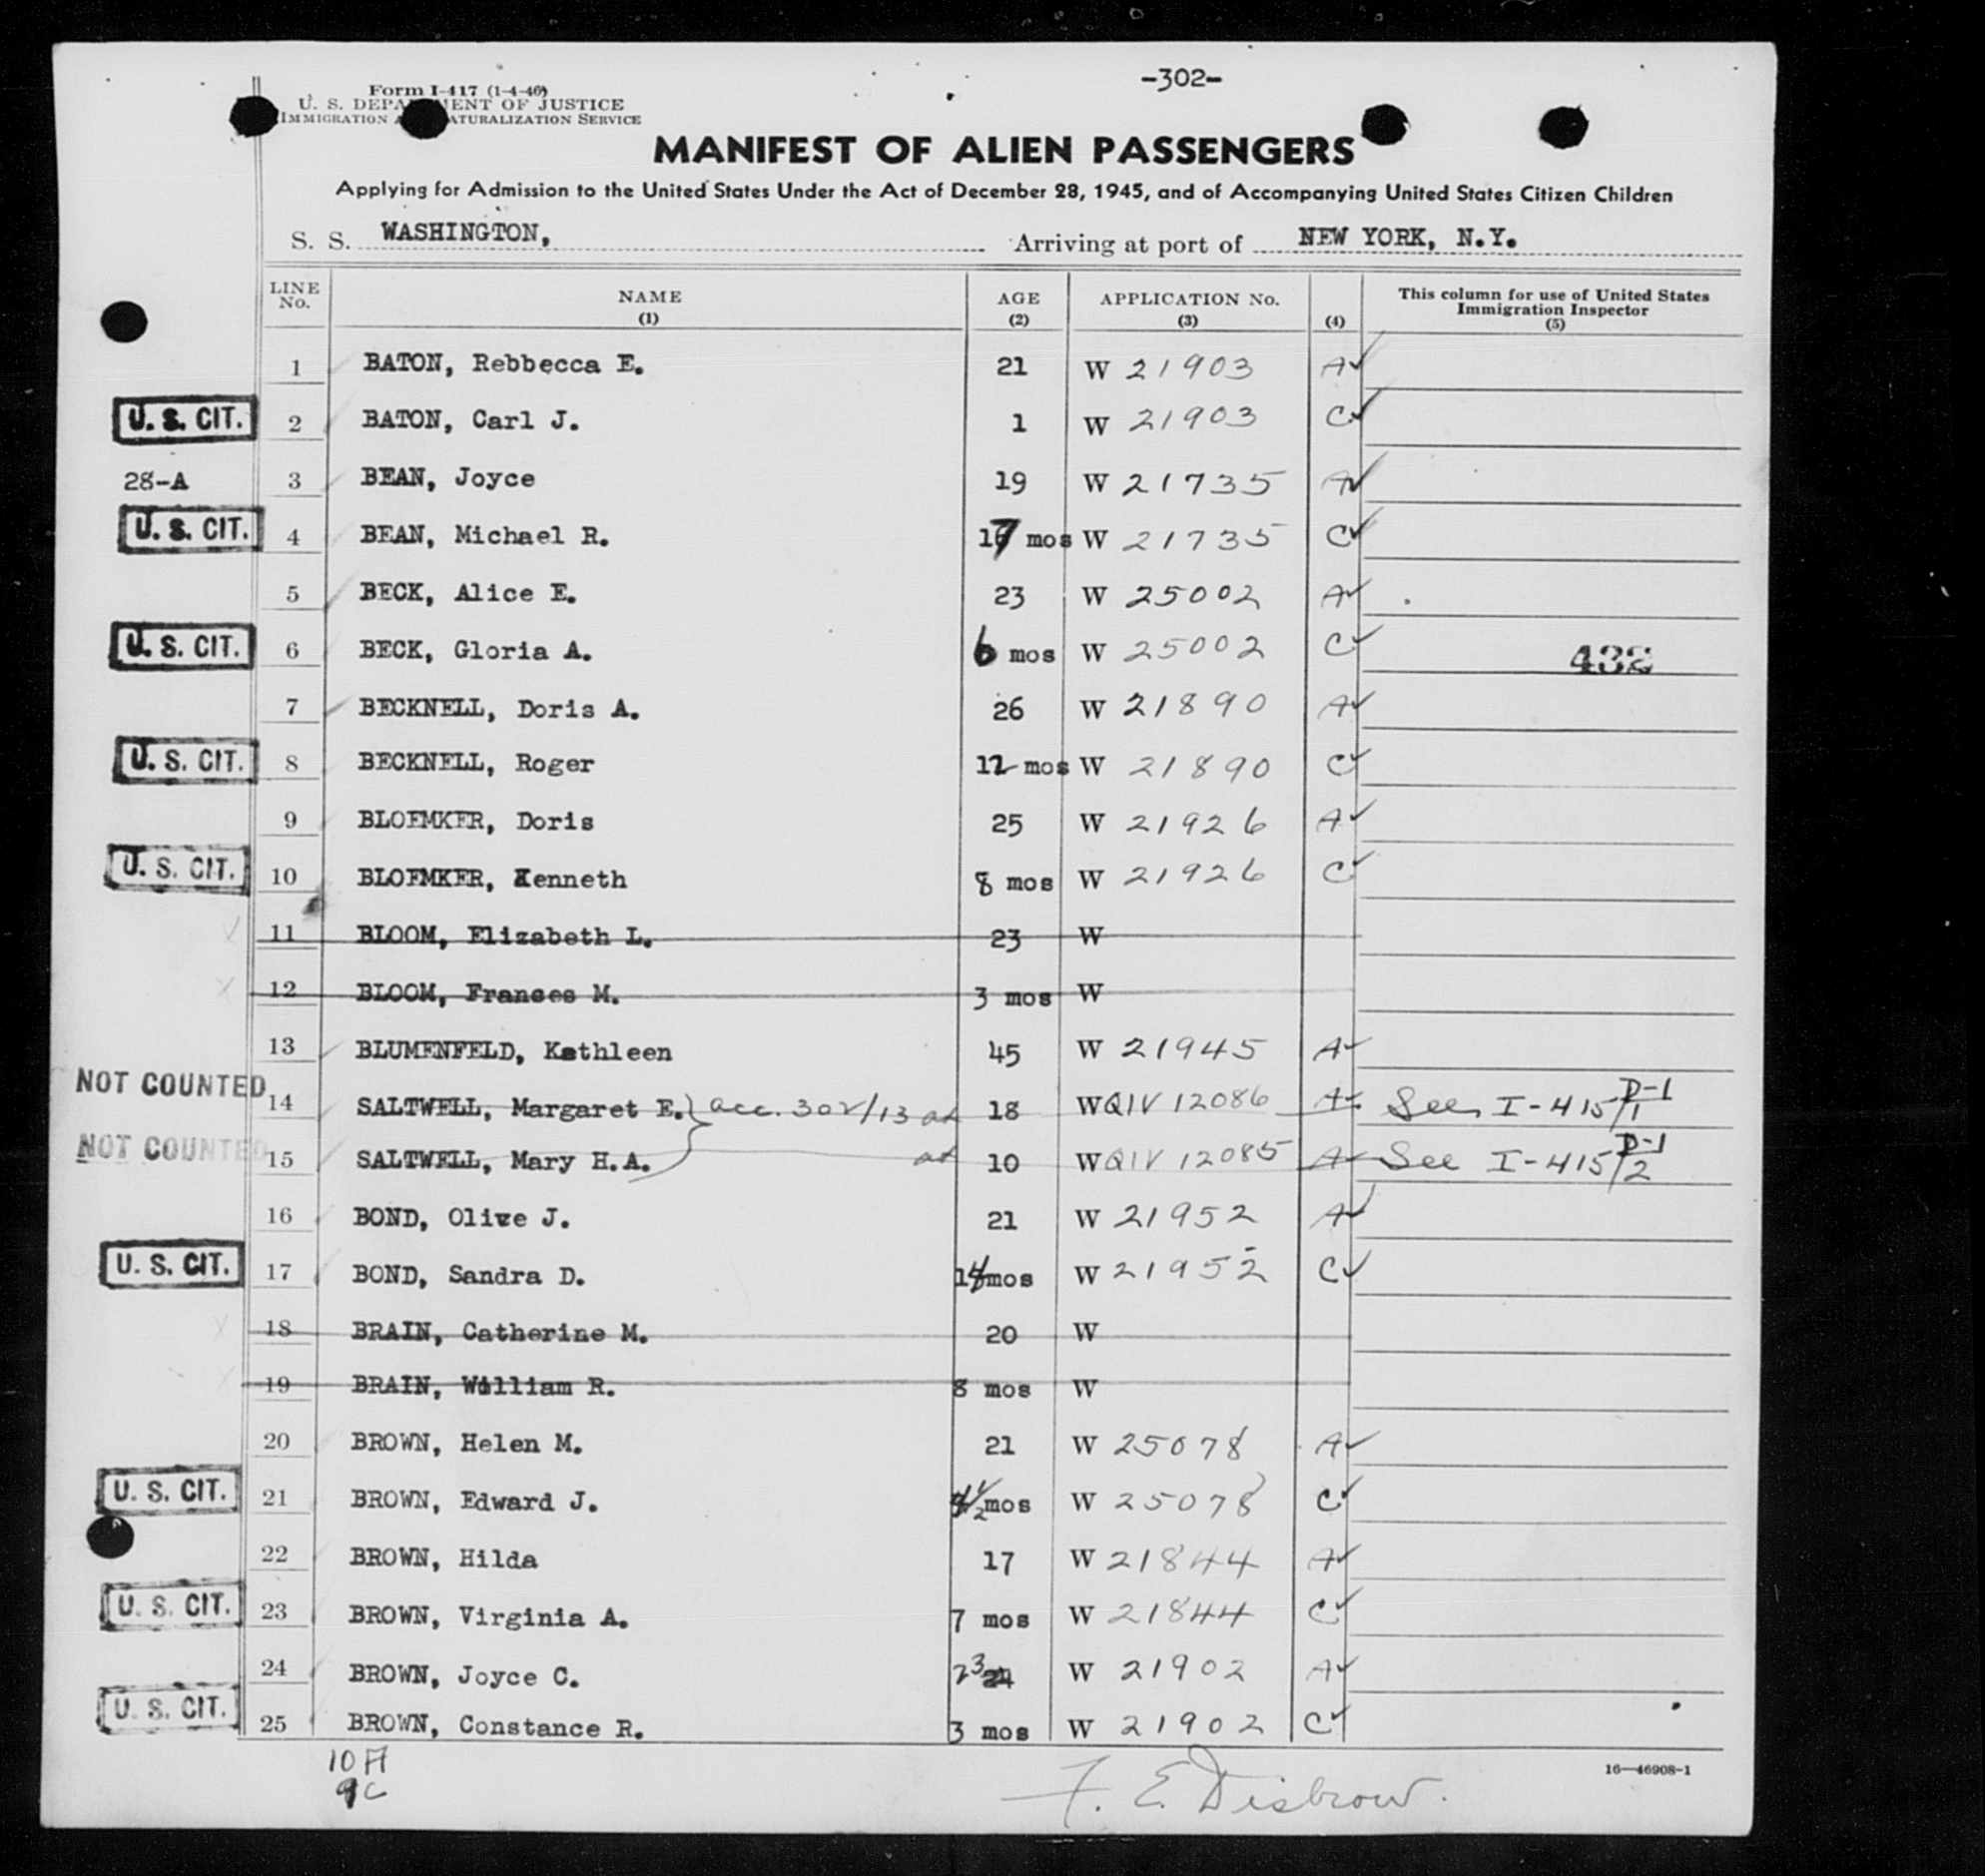 -302-
Form I-417 (1-4-46)
U. S. DEPARTMENT OF JUSTICE
IMMIGRATION AND NATURALIZATION SERVICE
MANIFEST OF ALIEN PASSENGERS
Applying for Admission to the United States Under the Act of December 28, 1945, and of Accompanying United States Citizen Children
S. S. WASHINGTON, Arriving at port of NEW YORK, N.Y.
LINE No. NAME (1) AGE (2) APPLICATION No. (3) (4) This column for use of United States Immigration Inspector (5)
1 BATON, Rebbecca E. 21 W 21903 A
U. S. CIT. 2 BATON, Carl J. 1 W 21903 C
28-A 3 BEAN, Joyce 19 W 21735 A
U. S. CIT. 4 BEAN, Michael R. 17 mos W 21735 C
5 BECK, Alice E. 23 W 25002 A
U. S. CIT. 6 BECK, Gloria A. 6 mos W 25002 C 432
7 BECKNELL, Doris A. 26 W 21890 A
U. S. CIT. 8 BECKNELL, Roger 12 mos W 21890 C
9 BLOEMKER, Doris 25 W 21926 A
U. S. CIT. 10 BLOEMKER, Kenneth 8 mos W 21926 C
11 BLOOM, Elizabeth L. 23 W
12 BLOOM, Frances M. 3 mos W
13 BLUMENFELD, Kathleen 45 W 21945 A
NOT COUNTED 14 SALTWELL, Margaret E. acc. 302/13 18 W QIV 12086 A See I-415 P-1/1
NOT COUNTED 15 SALTWELL, Mary H.A. 10 W QIV 12085 A See I-415 P-1/2
16 BOND, Olive J. 21 W 21952 A
U. S. CIT. 17 BOND, Sandra D. 14 mos W 21952 C
18 BRAIN, Catherine M. 20 W
19 BRAIN, William R. 8 mos W
20 BROWN, Helen M. 21 W 25078 A
U. S. CIT. 21 BROWN, Edward J. mos W 25078 C
22 BROWN, Hilda 17 W 21844 A
U. S. CIT. 23 BROWN, Virginia A. 7 mos W 21844 C
24 BROWN, Joyce C. 23 W 21902 A
U. S. CIT. 25 BROWN, Constance R. 3 mos W 21902 C
10 A
9 C
F. E. Disbrow.
16—46908-1